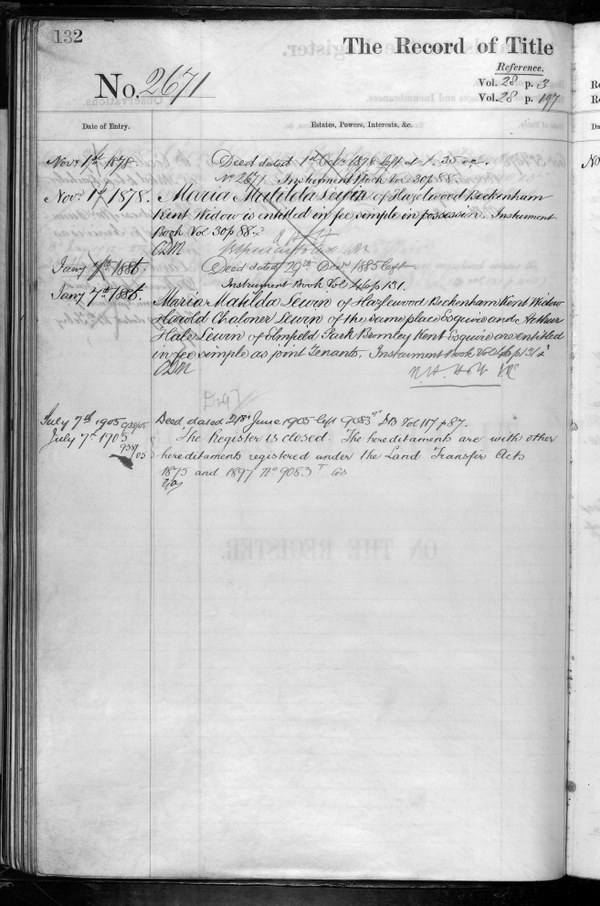 132
The Record of Title
No. 2671
Reference.
Vol. 28 p. 3
Vol. 28 p. 197
Date of Entry.
Estates, Powers, Interests, &c.
Novr 1st 1878. Deed dated 1st Octr 1878 left at 1.35
No 2671 Instrument Book Vol 30 p 88.
Novr 1st 1878. Maria Matilda Lewin of Hazelwood Beckenham
Kent Widow is entitled in fee simple in possession. Instrument
Book Vol 30 p 88.
Jany 7th 1886. Deed dated 29th Decr 1885 left
Instrument Book Vol 46 p 131.
Jany 7th 1886. Maria Matilda Lewin of Hazlewood Beckenham Kent Widow
Harold Chaloner Lewin of the same place Esquire and Arthur
Hale Lewin of Elmfield Park Bromley Kent Esquire are entitled
in fee simple as joint Tenants. Instrument Book Vol 46 p 131
July 7th 1905 Deed dated June 1905 left 9083 Vol 117 p 87.
July 7th 1905 The Register is closed. The hereditaments are with other
hereditaments registered under the Land Transfer Acts
1875 and 1897 No 9083